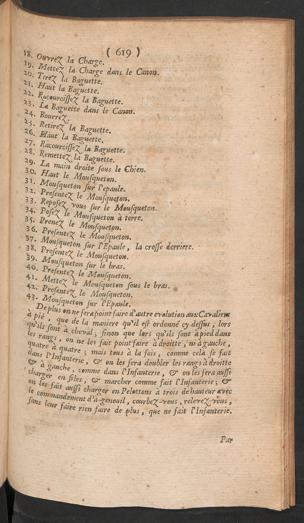 ( 619 )
18. Ouvrez la Charge.
19. Mettez la Charge dans le Canon.
20. Tirez la Baguette.
21. Haut la Baguette.
22. Racourcissez la Baguette.
23. La Baguette dans le Canon.
24. Bourrez.
25. Retirez la Baguette.
26. Haut la Baguette.
27. Racourcissez la Baguette.
28. Remettez la Baguette.
29. La main droite sous le Chien.
30. Haut le Mousqueton.
31. Mousqueton sur l'epaule.
32. Presentez le Mousqueton.
33. Reposez vous sur le Mousqueton.
34. Posez le Mousqueton à terre.
35. Prenez le Mousqueton.
36. Presentez le Mousqueton.
37. Mousqueton sur l'Epaule, la crosse derriere.
38. Presentez le Mousqueton.
39. Mousqueton sur le bras.
40. Presentez le Mousqueton.
41. Mettez le Mousqueton sous le bras.
42. Presentez le Mousqueton.
43. Mousqueton sur l'Epaule.
De plus on ne fera point faire d'autre evolution aux Cavaliers
à pié, que de la maniere qu'il est ordonné cy dessus, lors
qu'ils sont à cheval; sinon que lors qu'ils sont à pied dans
les rangs, on ne les fait point faire à droitte, ni à gauche,
quatre à quatre; mais tous à la fois, comme cela se fait
dans l'Infanterie, & on les fera doubler les rangs à droitte
& à gauche, comme dans l'Infanterie, & on les fera aussi
charger en files, & marcher comme fait l'Infanterie; &
on les fait aussi charger en Pelottons à trois de hauteur avec
le commandement d'à-genouil, courbez-vous, relevez-vous,
sans leur faire rien faire de plus, que ne fait l'Infanterie.
Par